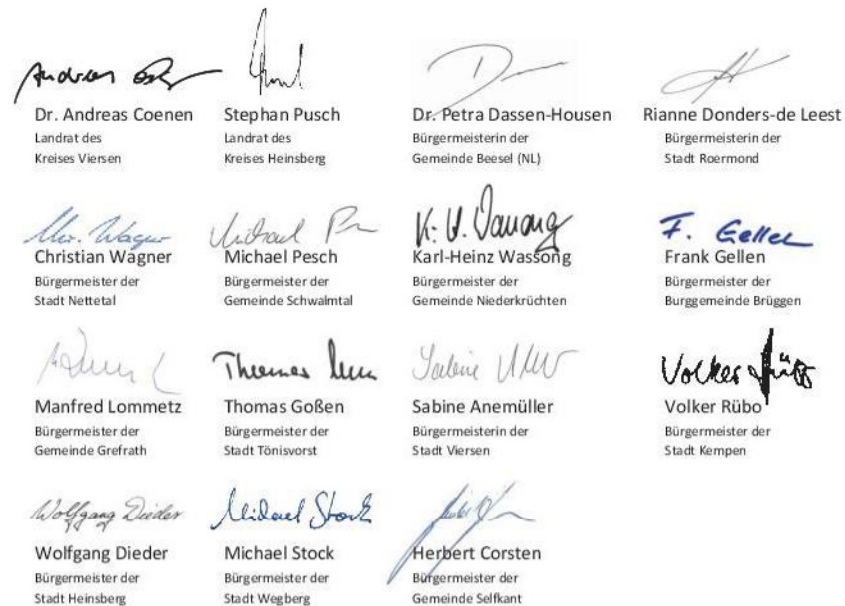 Dr. Andreas Coenen
Landrat des
Kreises Viersen
Stephan Pusch
Landrat des
Kreises Heinsberg
Dr. Petra Dassen-Housen
Bürgermeisterin der
Gemeinde Beesel (NL)
Rianne Donders-de Leest
Bürgermeisterin der
Stadt Roermond
Christian Wagner
Bürgermeister der
Stadt Nettetal
Michael Pesch
Bürgermeister der
Gemeinde Schwalmtal
Karl-Heinz Wassong
Bürgermeister der
Gemeinde Niederkrüchten
F. Gellen
Frank Gellen
Bürgermeister der
Burggemeinde Brüggen
Manfred Lommetz
Bürgermeister der
Gemeinde Grefrath
Thomas Goßen
Bürgermeister der
Stadt Tönisvorst
Sabine Anemüller
Bürgermeisterin der
Stadt Viersen
Volker Rübo
Volker Rübo
Bürgermeister der
Stadt Kempen
Wolfgang Dieder
Wolfgang Dieder
Bürgermeister der
Stadt Heinsberg
Michael Stock
Michael Stock
Bürgermeister der
Stadt Wegberg
Herbert Corsten
Bürgermeister der
Gemeinde Selfkant